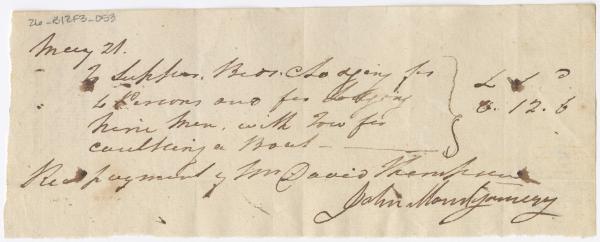 26-B12F3-D53
May 21.
" To Supper, Beds, Lodging for £ S D
" 4 Persons and for Lodging 8. 12. 6
Nine Men, with Tow for
caulking a Boat —
Recd payment of Mr David Thompson
John Montgomery